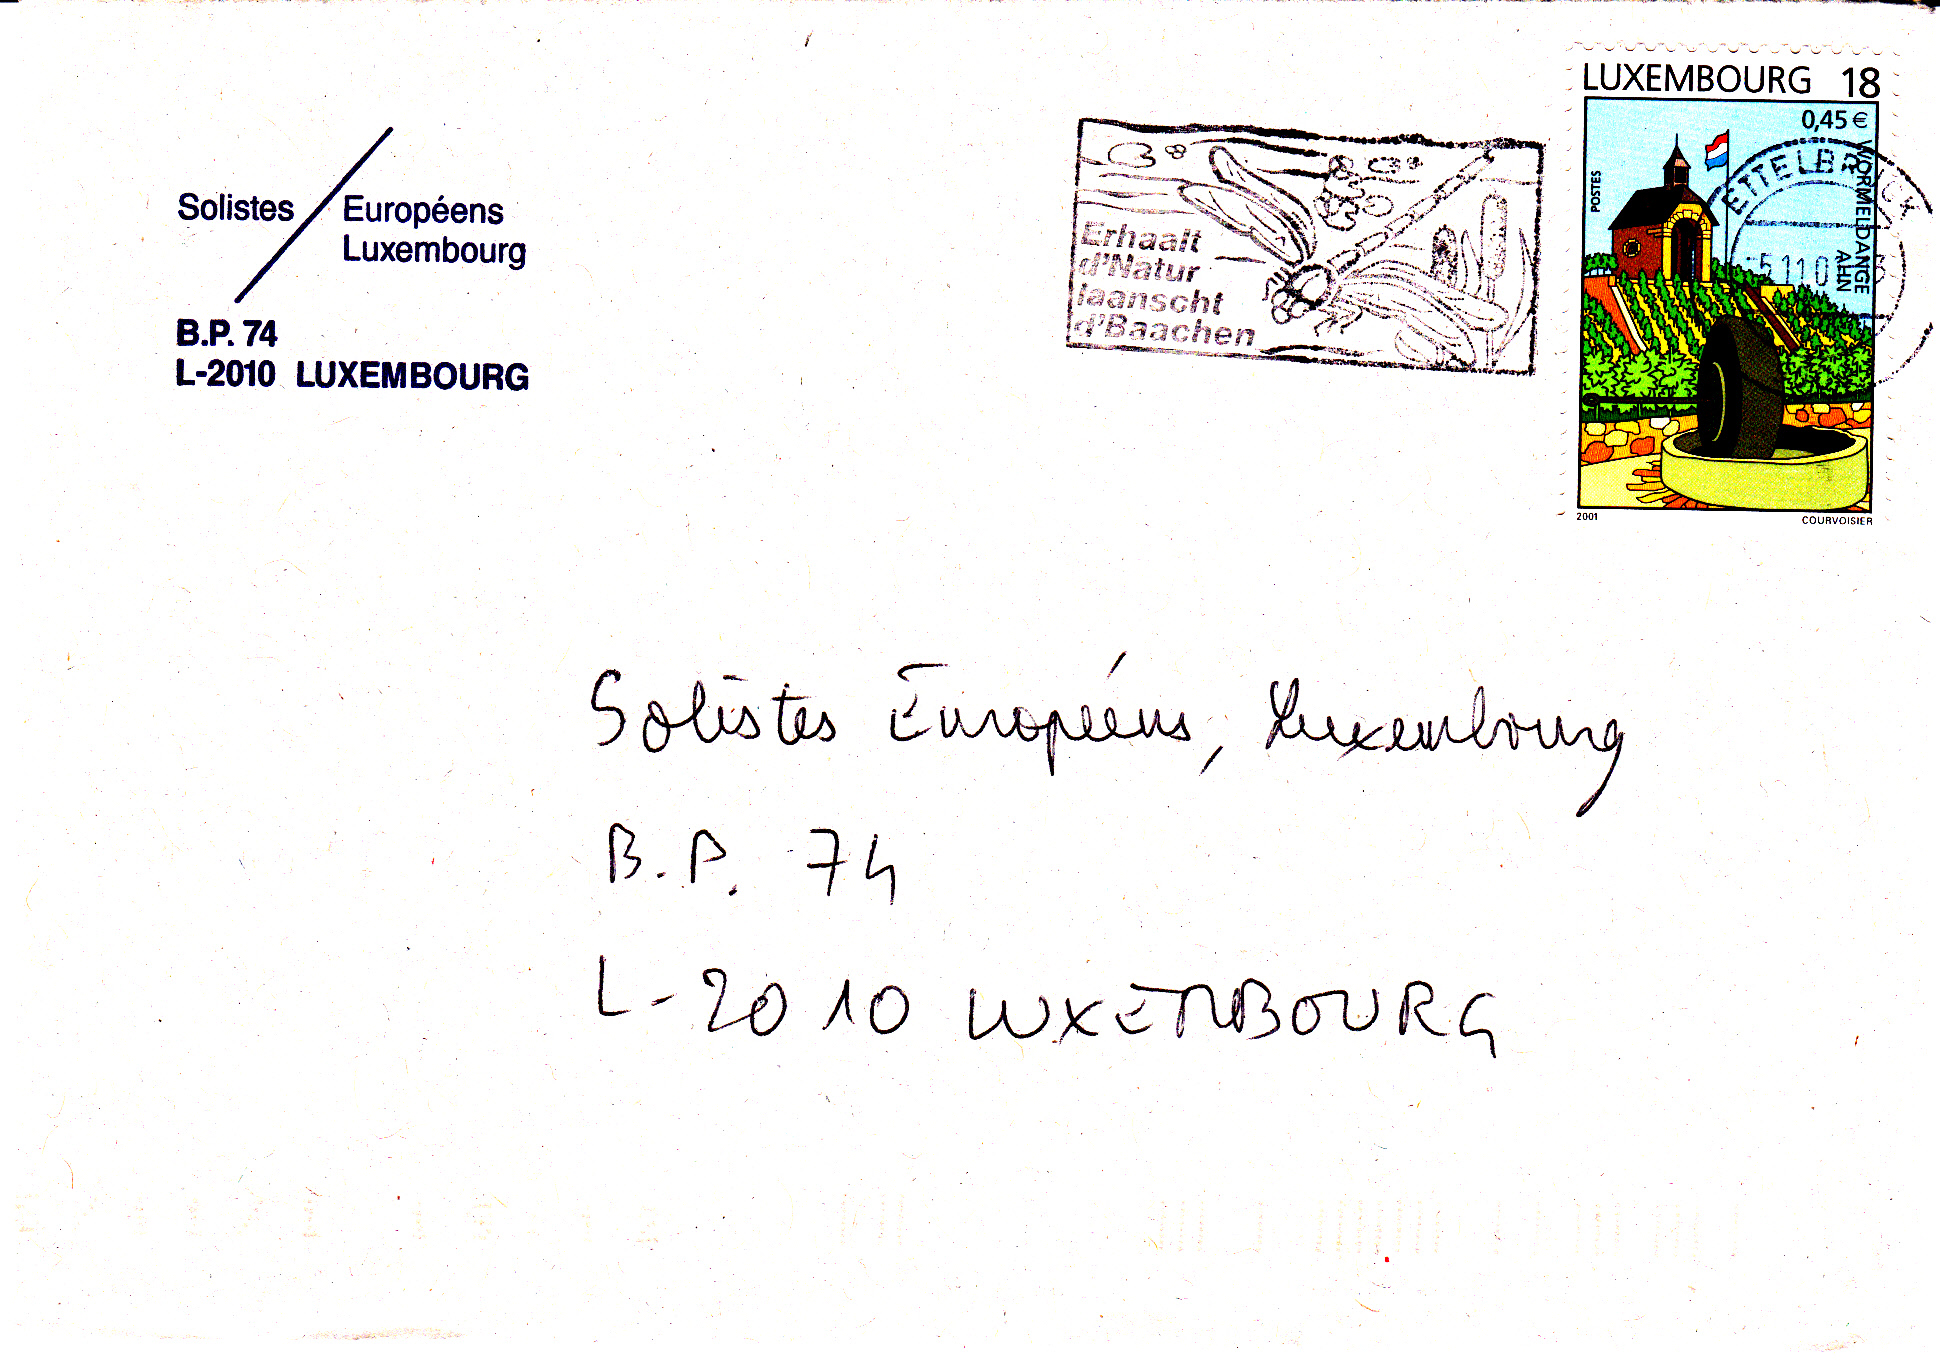 Solistes / Européens
Luxembourg
B.P. 74
L-2010 LUXEMBOURG
Erhaalt
d'Natur
laanscht
d'Baachen
LUXEMBOURG 18
0,45 €
POSTES
WORMELDANGE
AHN
ETTELBRUCK
2001
COURVOISIER
Solistes Européens, Luxembourg
B.P. 74
L-2010 LUXEMBOURG